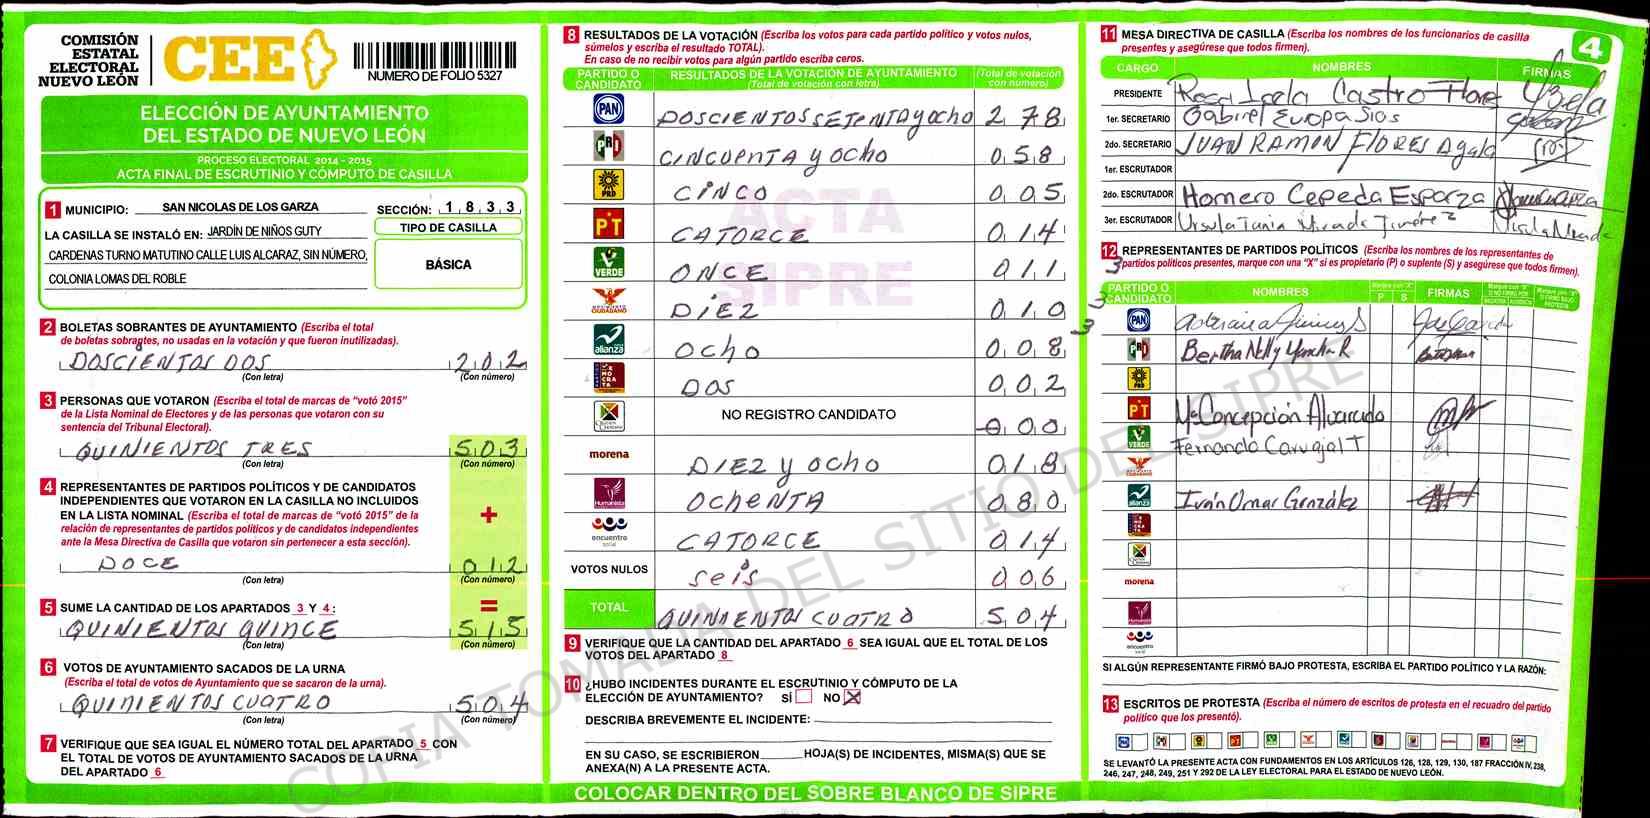 COMISIÓN
ESTATAL
ELECTORAL
NUEVO LEÓN
CEE
NUMERO DE FOLIO 5327
ELECCIÓN DE AYUNTAMIENTO
DEL ESTADO DE NUEVO LEÓN
PROCESO ELECTORAL 2014 - 2015
ACTA FINAL DE ESCRUTINIO Y CÓMPUTO DE CASILLA
1 MUNICIPIO: SAN NICOLAS DE LOS GARZA SECCIÓN: 1 8 3 3
LA CASILLA SE INSTALÓ EN: JARDÍN DE NIÑOS GUTY
CARDENAS TURNO MATUTINO CALLE LUIS ALCARAZ, SIN NÚMERO,
COLONIA LOMAS DEL ROBLE
TIPO DE CASILLA
BÁSICA
2 BOLETAS SOBRANTES DE AYUNTAMIENTO (Escriba el total
de boletas sobrantes, no usadas en la votación y que fueron inutilizadas).
DOSCIENTOS DOS 2 0 2
(Con letra) (Con número)
3 PERSONAS QUE VOTARON (Escriba el total de marcas de “votó 2015”
de la Lista Nominal de Electores y de las personas que votaron con su
sentencia del Tribunal Electoral).
QUINIENTOS TRES 5 0 3
(Con letra) (Con número)
4 REPRESENTANTES DE PARTIDOS POLÍTICOS Y DE CANDIDATOS
INDEPENDIENTES QUE VOTARON EN LA CASILLA NO INCLUIDOS
EN LA LISTA NOMINAL (Escriba el total de marcas de “votó 2015” de la
relación de representantes de partidos políticos y de candidatos independientes
ante la Mesa Directiva de Casilla que votaron sin pertenecer a esta sección).
+
DOCE 0 1 2
(Con letra) (Con número)
=
5 SUME LA CANTIDAD DE LOS APARTADOS 3 Y 4:
QUINIENTOS QUINCE 5 1 5
(Con letra) (Con número)
6 VOTOS DE AYUNTAMIENTO SACADOS DE LA URNA
(Escriba el total de votos de Ayuntamiento que se sacaron de la urna).
QUINIENTOS CUATRO 5 0 4
(Con letra) (Con número)
7 VERIFIQUE QUE SEA IGUAL EL NÚMERO TOTAL DEL APARTADO 5 CON
EL TOTAL DE VOTOS DE AYUNTAMIENTO SACADOS DE LA URNA
DEL APARTADO 6
8 RESULTADOS DE LA VOTACIÓN (Escriba los votos para cada partido político y votos nulos,
súmelos y escriba el resultado TOTAL).
En caso de no recibir votos para algún partido escriba ceros.
PARTIDO O CANDIDATO RESULTADOS DE LA VOTACIÓN DE AYUNTAMIENTO (Total de votación con letra) (Total de votación con número)
PAN DOSCIENTOS SETENTA y ocho 2 7 8
PRI CINCUENTA y OCHO 0 5 8
PRD CINCO 0 0 5
PT CATORCE 0 1 4
VERDE ONCE 0 1 1
MOVIMIENTO CIUDADANO DIEZ 0 1 0
alianza OCHO 0 0 8
DEMOCRATA DOS 0 0 2
NO REGISTRO CANDIDATO 0 0 0
morena DIEZ y OCHO 0 1 8
Humanista OCHENTA 0 8 0
encuentro social CATORCE 0 1 4
VOTOS NULOS seis 0 0 6
TOTAL QUINIENTOS CUATRO 5 0 4
ACTA
SIPRE
9 VERIFIQUE QUE LA CANTIDAD DEL APARTADO 6 SEA IGUAL QUE EL TOTAL DE LOS
VOTOS DEL APARTADO 8
10 ¿HUBO INCIDENTES DURANTE EL ESCRUTINIO Y CÓMPUTO DE LA
ELECCIÓN DE AYUNTAMIENTO? SÍ NO X
DESCRIBA BREVEMENTE EL INCIDENTE:
EN SU CASO, SE ESCRIBIERON HOJA(S) DE INCIDENTES, MISMA(S) QUE SE
ANEXA(N) A LA PRESENTE ACTA.
COLOCAR DENTRO DEL SOBRE BLANCO DE SIPRE
COPIA TOMADA DEL SITIO DEL SIPRE
11 MESA DIRECTIVA DE CASILLA (Escriba los nombres de los funcionarios de casilla
presentes y asegúrese que todos firmen).
4
CARGO NOMBRES FIRMAS
PRESIDENTE Rosa Isela Castro Flores
1er. SECRETARIO Gabriel Europa Sias
2do. SECRETARIO JUAN RAMON FLORES Ayala
1er. ESCRUTADOR
2do. ESCRUTADOR Homero Cepeda Esparza
3er. ESCRUTADOR Ursula Tania
12 REPRESENTANTES DE PARTIDOS POLÍTICOS (Escriba los nombres de los representantes de
partidos políticos presentes, marque con una “X” si es propietario (P) o suplente (S) y asegúrese que todos firmen).
3
3
3
PARTIDO O CANDIDATO NOMBRES Marque con "X" P S FIRMAS
PAN
PRI Bertha Nelly
PRD
PT Ma Concepción Alvarado
VERDE Fernando Carvajal T
alianza Iván Omar González
morena
encuentro social
SI ALGÚN REPRESENTANTE FIRMÓ BAJO PROTESTA, ESCRIBA EL PARTIDO POLÍTICO Y LA RAZÓN:
13 ESCRITOS DE PROTESTA (Escriba el número de escritos de protesta en el recuadro del partido
político que los presentó).
SE LEVANTÓ LA PRESENTE ACTA CON FUNDAMENTOS EN LOS ARTÍCULOS 126, 128, 129, 130, 187 FRACCIÓN IV, 238,
246, 247, 248, 249, 251 Y 292 DE LA LEY ELECTORAL PARA EL ESTADO DE NUEVO LEÓN.